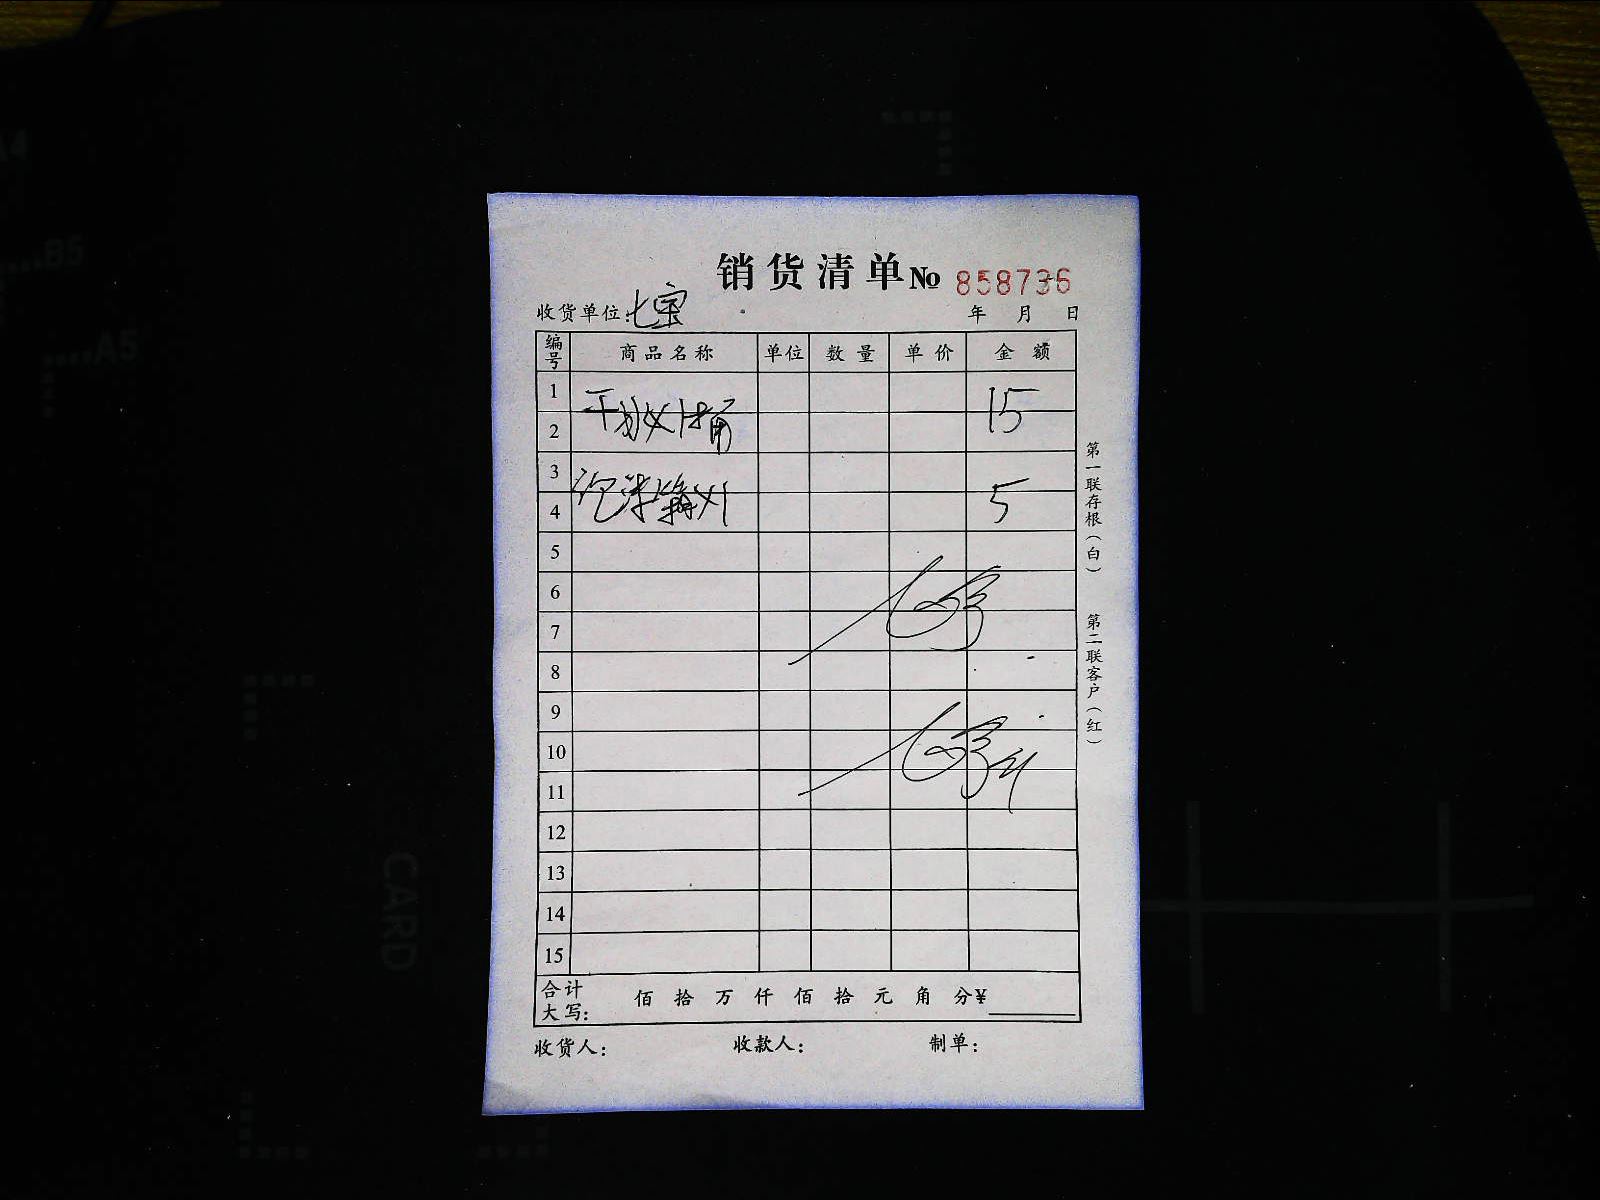 销货清单 № 858736
收货单位: 七宝 年 月 日
编号 商品名称 单位 数量 单价 金额
1
2 15
3
4 泡沫箱X1 5
5
6
7
8
9
10
11
12
13
14
15
合计大写: 佰 拾 万 仟 佰 拾 元 角 分 ¥
收货人: 收款人: 制单:
第一联存根(白) 第二联客户(红)
A4
B5
A5
CARD